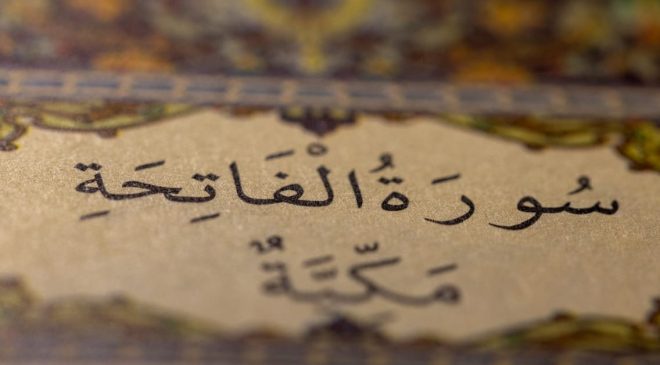 سُورَةُ الْفَاتِحَةِ
مَكِّيَّةٌ